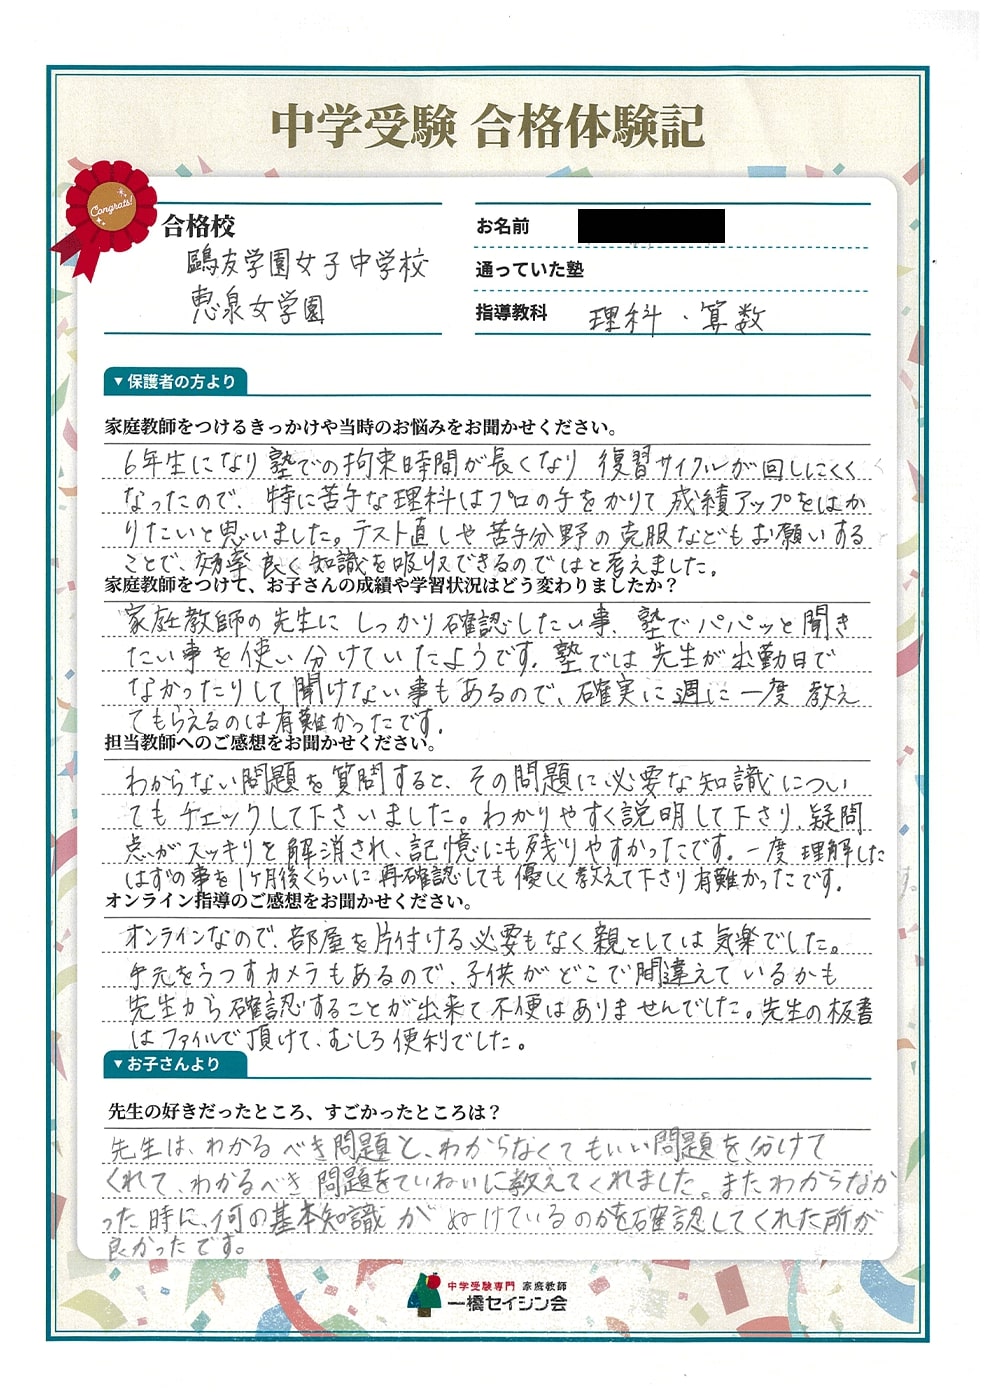 中学受験 合格体験記
Congrats!
合格校
鷗友学園女子中学校
恵泉女学園
お名前
通っていた塾
指導教科 理科・算数
▼保護者の方より
家庭教師をつけるきっかけや当時のお悩みをお聞かせください。
6年生になり塾での拘束時間が長くなり 復習サイクルが回しにくく
なったので、特に苦手な理科はプロの手をかりて成績アップをはか
りたいと思いました。テスト直しや苦手分野の克服などもお願いする
ことで、効率良く知識を吸収できるのではと考えました。
家庭教師をつけて、お子さんの成績や学習状況はどう変わりましたか？
家庭教師の先生にしっかり確認したい事、塾でパパッと聞き
たい事を使い分けていたようです。塾では先生が出勤日で
なかったりして聞けない事もあるので、確実に週に一度教え
てもらえるのは有難かったです。
担当教師へのご感想をお聞かせください。
わからない問題を質問すると、その問題に必要な知識につい
てもチェックして下さいました。わかりやすく説明して下さり、疑問
点がスッキリと解消され、記憶にも残りやすかったです。一度理解した
はずの事を1ヶ月後くらいに再確認しても優しく教えて下さり有難かったです。
オンライン指導のご感想をお聞かせください。
オンラインなので、部屋を片付ける必要もなく親としては気楽でした。
手元をうつすカメラもあるので、子供がどこで間違えているかも
先生から確認することが出来て不便はありませんでした。先生の板書
はファイルで頂けて、むしろ便利でした。
▼お子さんより
先生の好きだったところ、すごかったところは？
先生は、わかるべき問題と、わからなくてもいい問題を、分けて
くれて、わかるべき問題をていねいに教えてくれました。またわからなか
った時に、何の基本知識がぬけているのかを確認してくれた所が
良かったです。
中学受験専門 家庭教師
一橋セイシン会